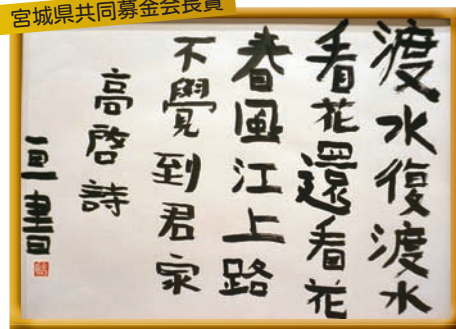 宮城県共同募金会長賞
渡水復渡水
看花還看花
春風江上路
不覺到君家
高啓詩
亘書